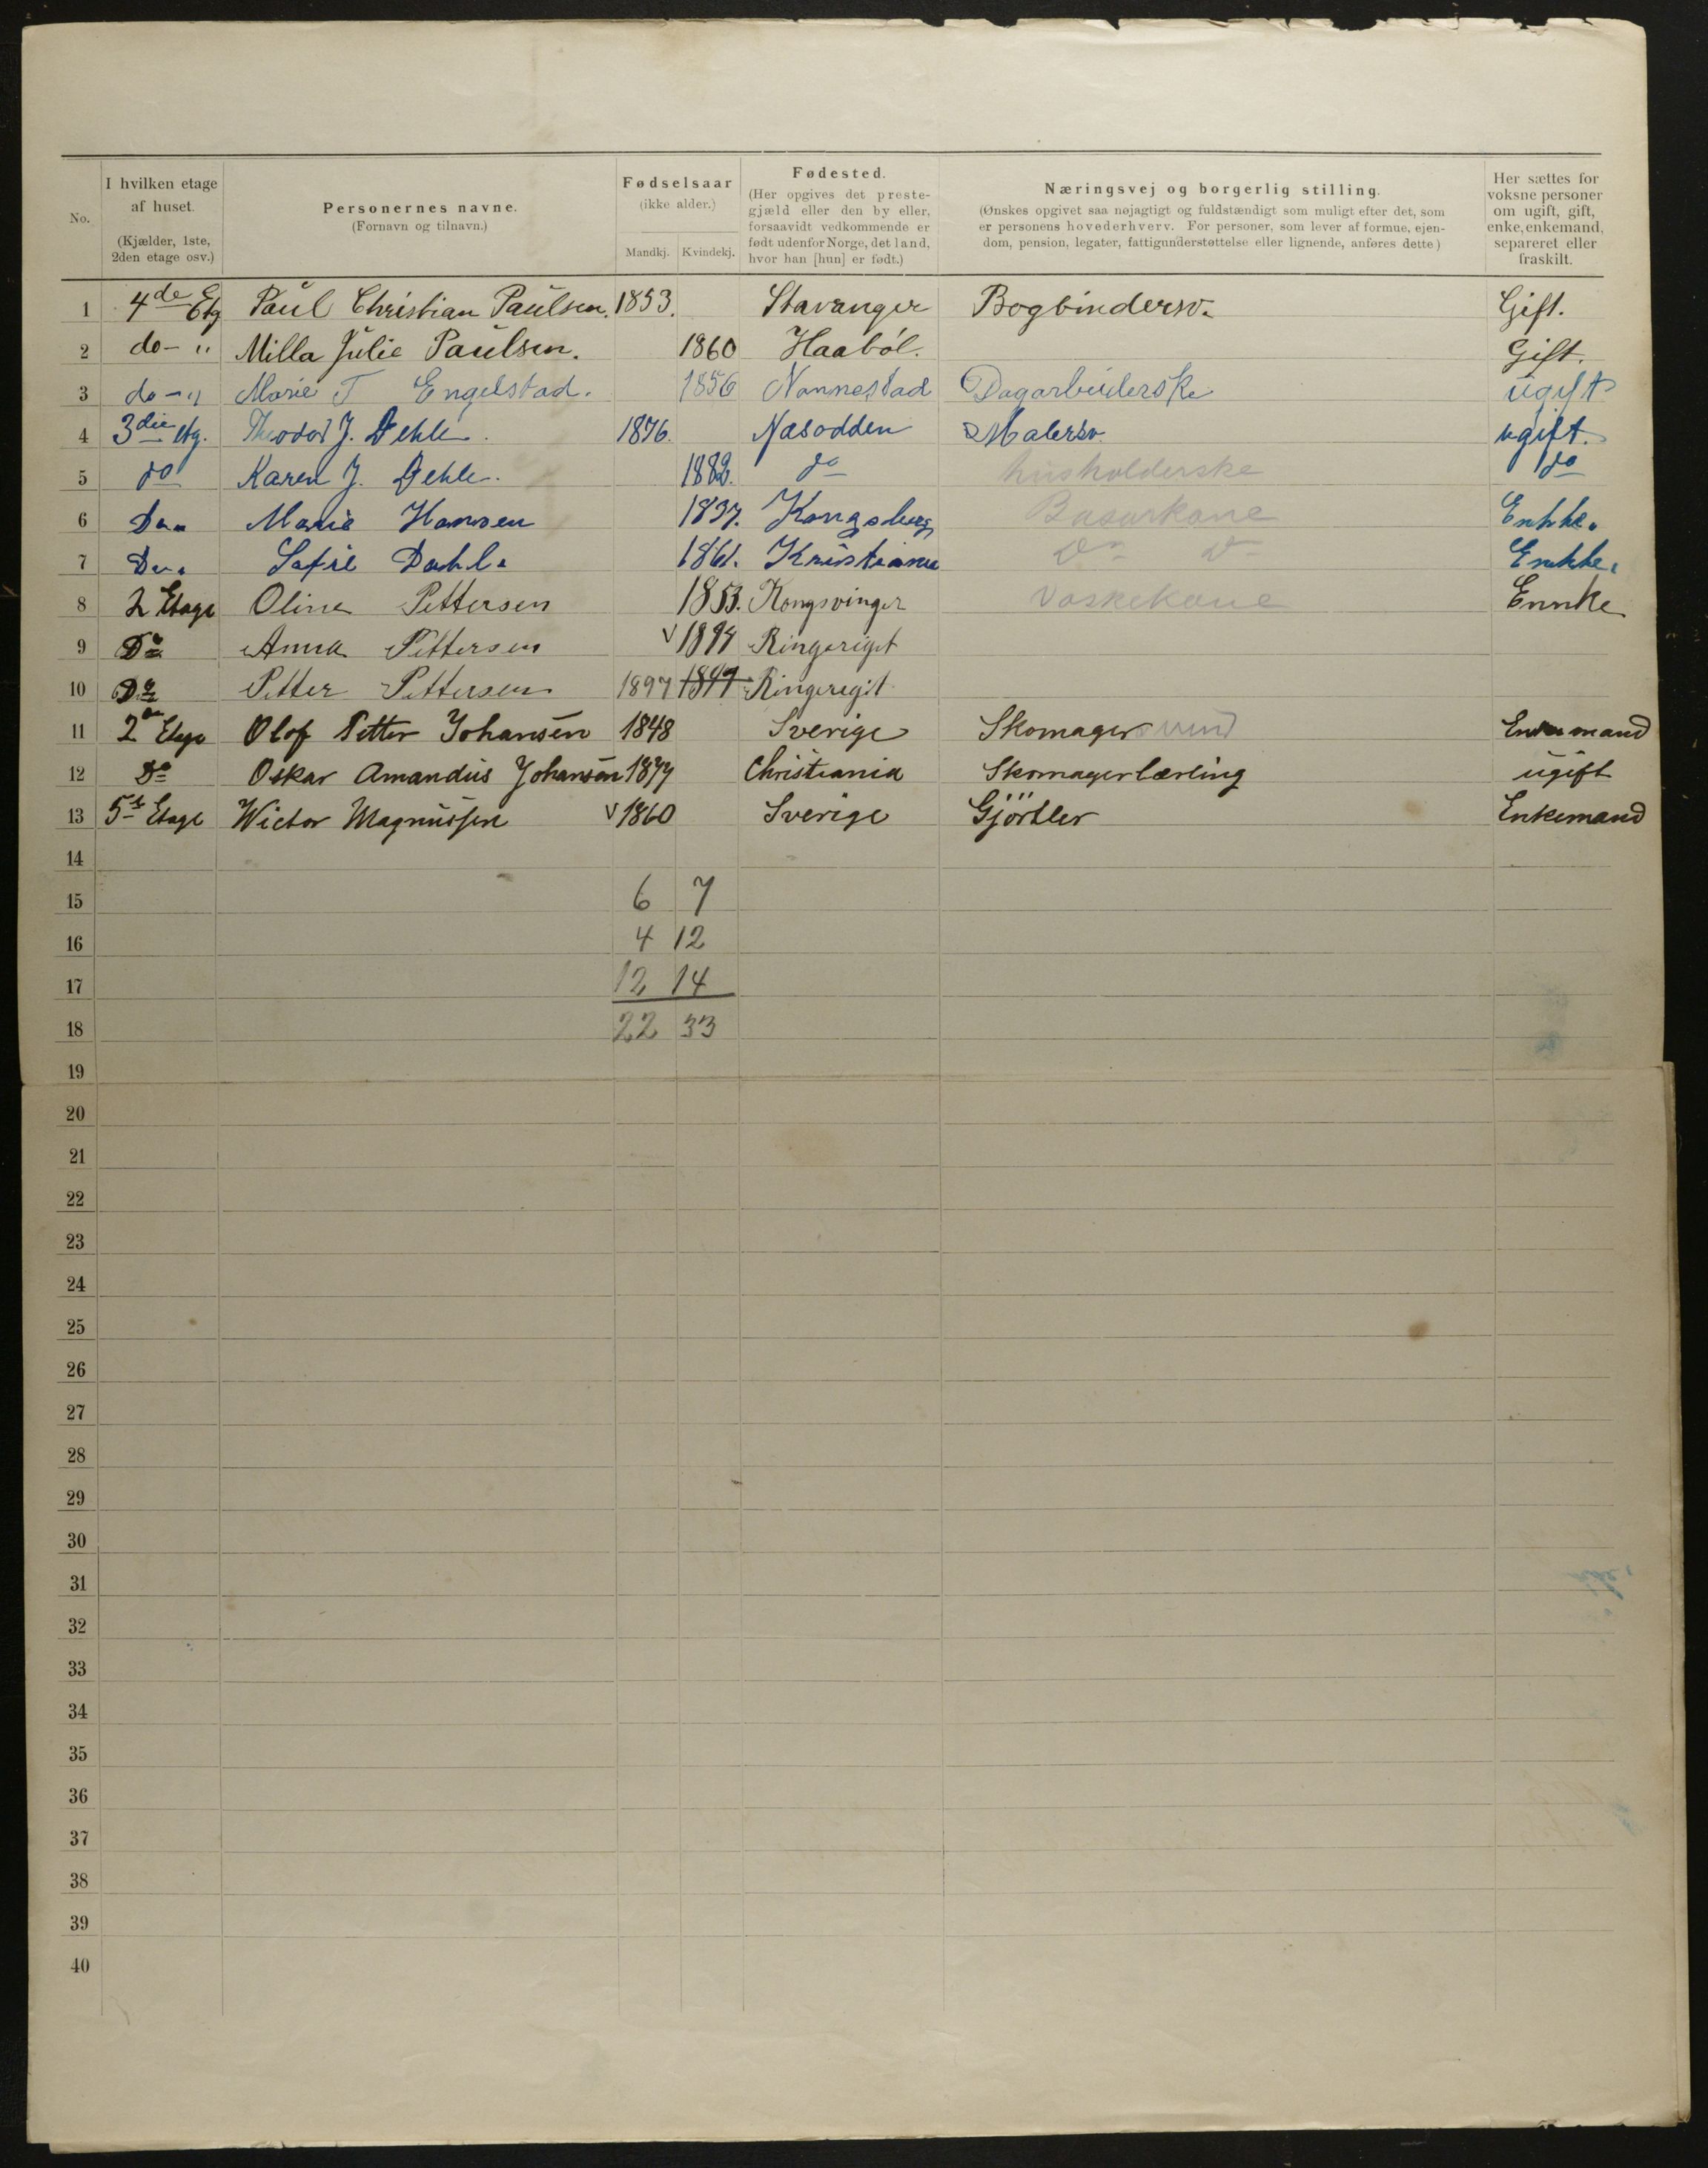 No.
I hvilken etage af huset. (Kjælder, 1ste, 2den etage osv.)
Personernes navne. (Fornavn og tilnavn.)
Fødselsaar (ikke alder.)
Mandkj. Kvindekj.
Fødested. (Her opgives det prestegjæld eller den by eller, forsaavidt vedkommende er født udenfor Norge, det land, hvor han [hun] er født.)
Næringsvej og borgerlig stilling.
(Ønskes opgivet saa nøjagtigt og fuldstændigt som muligt efter det, som er personens hovederhverv. For personer, som lever af formue, ejendom, pension, legater, fattigunderstøttelse eller lignende, anføres dette)
Her sættes for voksne personer om ugift, gift, enke, enkemand, separeret eller fraskilt.
1 4de Etg Paul Christian Paulsen. 1853. Stavanger Bogbindersv. Gift.
2 do - " Milla Julie Paulsen. 1860 Haaböl. Gift.
3 do - " Marie T Engelstad. 1856 Nannestad Dagarbeiderske ugift
4 3die etg. Theodor J. Dehle. 1876. Næsodden Malersv. ugift.
5 do Karen J. Dehle. 1882. do husholderske do
6 Do " Marie Hansen 1837. Kongsberg Basarkone Enkke.
7 Do " Sofie Dahl. 1861. Kristiania Do Do Enkke.
8 2 Etage Oline Pettersen 1853. Kongsvinger Vaskekone Ennke
9 Do Anna Pettersen √ 1894 Ringeriget
10 Do Petter Pettersen 1897 1897 Ringeregit
11 2de Etage Olof Petter Johansen 1848 Sverige Skomagersvend Enkemand
12 Do Oskar Amandus Johansen 1877 Christiania Skomagerlærling ugift
13 5te Etage Wictor Magnussen √ 1860 Sverige Gjörtler Enkemand
14
15 6 7
16 4 12
17 12 14
18 22 33
19
20
21
22
23
24
25
26
27
28
29
30
31
32
33
34
35
36
37
38
39
40